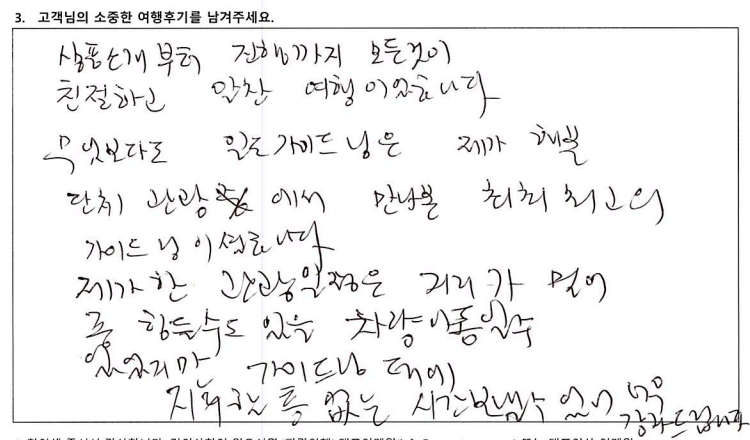 3. 고객님의 소중한 여행후기를 남겨주세요.
상품소개부터 진행까지 모든것이
친절하고 알찬 여행이었습니다
무엇보다도 가이드님은 제가 해본
단체 관광 에서 만나본 최고의
가이드님이셨습니다
제가한 관광일정은 거리가 멀어
좀 힘들수도 있을 차량이동일수
있었지만 가이드님 덕에
지루할 틈 없는 시간보낼수 있어 너무
감사드립니다